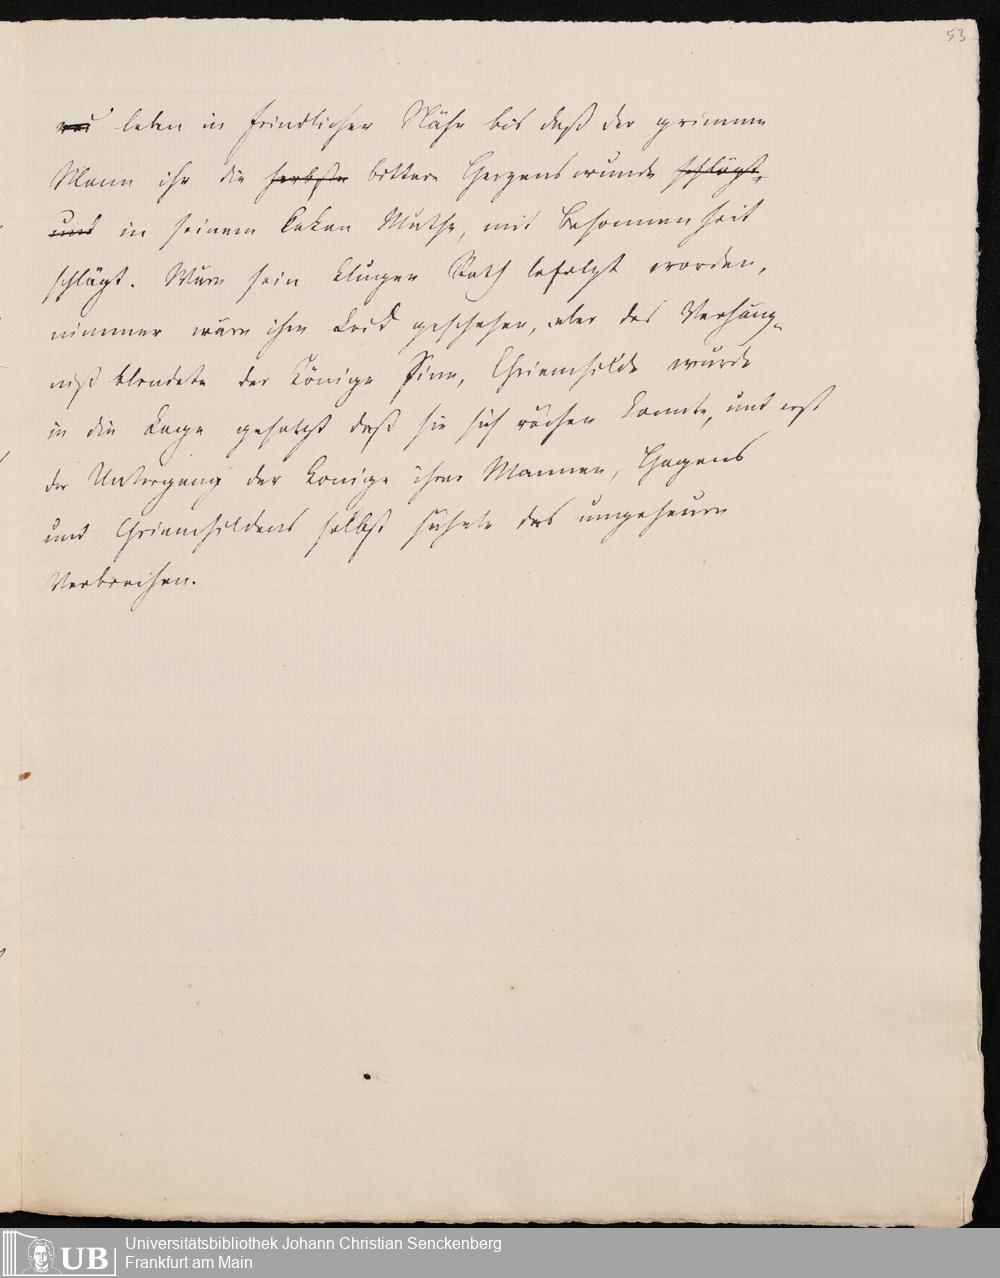 53
leben in feindlicher Nähe bis daß der grimme
Mann ihr die herbste bittere Herzenswunde schlägt,
und in seinem kaken Muthe, mit Besonnenheit
schlägt. Wäre sein kluger Rath befolgt worden,
nimmer wäre ihm Leid geschehen, aber das Verhäng-
niß blendete der Könige Sinn, Chriemhilde wurde
in die Lage gesetzt daß sie sich rächen konnte, und erst
der Untergang der Konige ihrer Mannen, Hagens
und Chriemhildens selbst sühnte das ungeheure
Verbrechen.
UB
Universitätsbibliothek Johann Christian Senckenberg
Frankfurt am Main